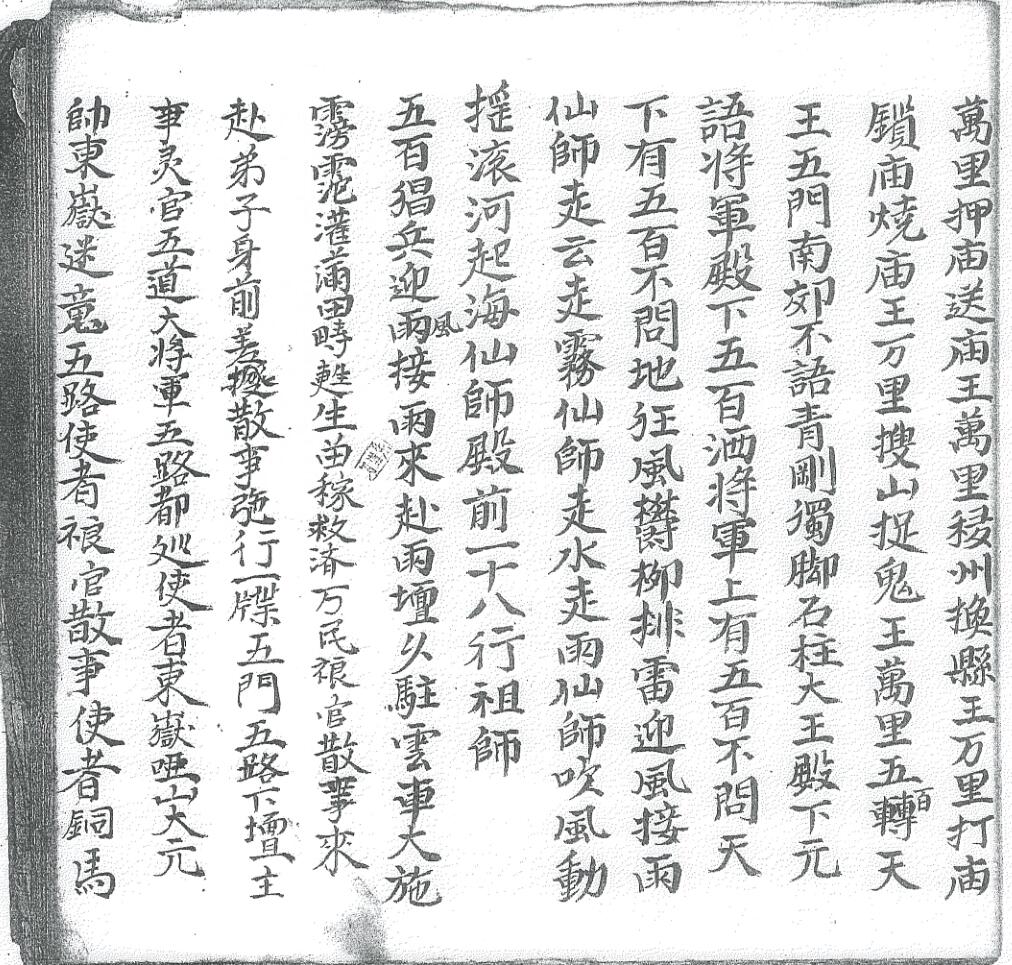 萬里押庙送庙王萬里移州換縣王万里打庙
鎖庙燒庙王万里搜山捉鬼王萬里五百轉天
王五門南郊不語青剛獨脚石柱大王殿下元
語将軍殿下五百洒将軍上有五百不問天
下有五百不問地狂風欝柳排雷迎風接雨
仙師走云走霧仙師走水走雨仙師吹風動
摇滚河起海仙師殿前一十八行祖師
五百猖兵迎風接雨來赴雨壇久駐雲車大施
霶霈灌蒲田疇甦生苗稼救済万民禓官散事來
赴弟子身前差撥散事施行一牒五門五路下壇主
事灵官五道大将軍五路都廵使者東嶽啞山大元
帥東嶽迷䰟五路使者禓官散事使者銅馬